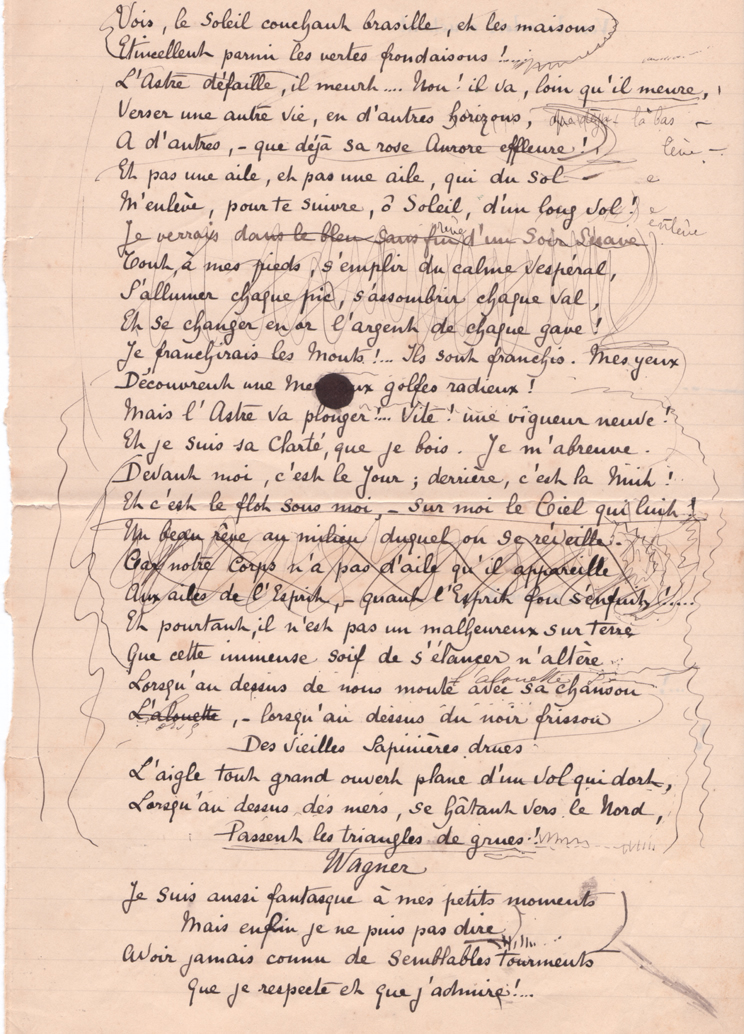 Vois, le Soleil couchant brasille, et les maisons
Etincellent parmi les vertes frondaisons !...
L'Astre défaille, il meurt.... Non ! il va, loin qu'il meure,
Verser une autre vie, en d'autres horizons, là bas
A d'autres, - que déjà sa rose Aurore effleure ! lève -
Et pas une aile, et pas une aile, qui du sol - e
M'enlève, pour te suivre, ô Soleil, d'un long vol ! e
enlève
Je verrais dans le bleu sans fin d'un Soir
Tout, à mes pieds, s'emplir du calme vespéral,
S'allumer chaque pic, s'assombrir chaque val,
Et se changer en or l'argent de chaque gave !
Je franchirais les Monts !... Ils sont franchis. Mes yeux
Découvrent une golfes radieux !
Mais l'Astre va plonger !... Vite ! une vigueur neuve !
Et je suis sa Clarté, que je bois. Je m'abreuve.
Devant moi, c'est le Jour ; derrière, c'est la Nuit !
Et c'est le flot sous moi, - sur moi le Ciel qui luit !
Un beau rêve au milieu duquel on se réveille.
Car notre Corps n'a pas d'aile qu'il appareille
Aux ailes de l'Esprit, - quant l'Esprit fou s'enfuit !....
Et pourtant, il n'est pas un malheureux sur terre
Que cette immense soif de s'élancer n'altère
l'alouette
Lorsqu'au dessus de nous monte avec sa chanson
L'alouette, - lorsqu'au dessus du noir frisson
Des vieilles Sapinières drues
L'aigle tout grand ouvert plane d'un vol qui dort,
Lorsqu'au dessus des mers, se hâtant vers le Nord,
Passent les triangles de grues !
Wagner
Je suis aussi fantasque à mes petits moments
Mais enfin je ne puis pas dire
Avoir jamais connu de semblables tourments
Que je respecte et que j'admire !...